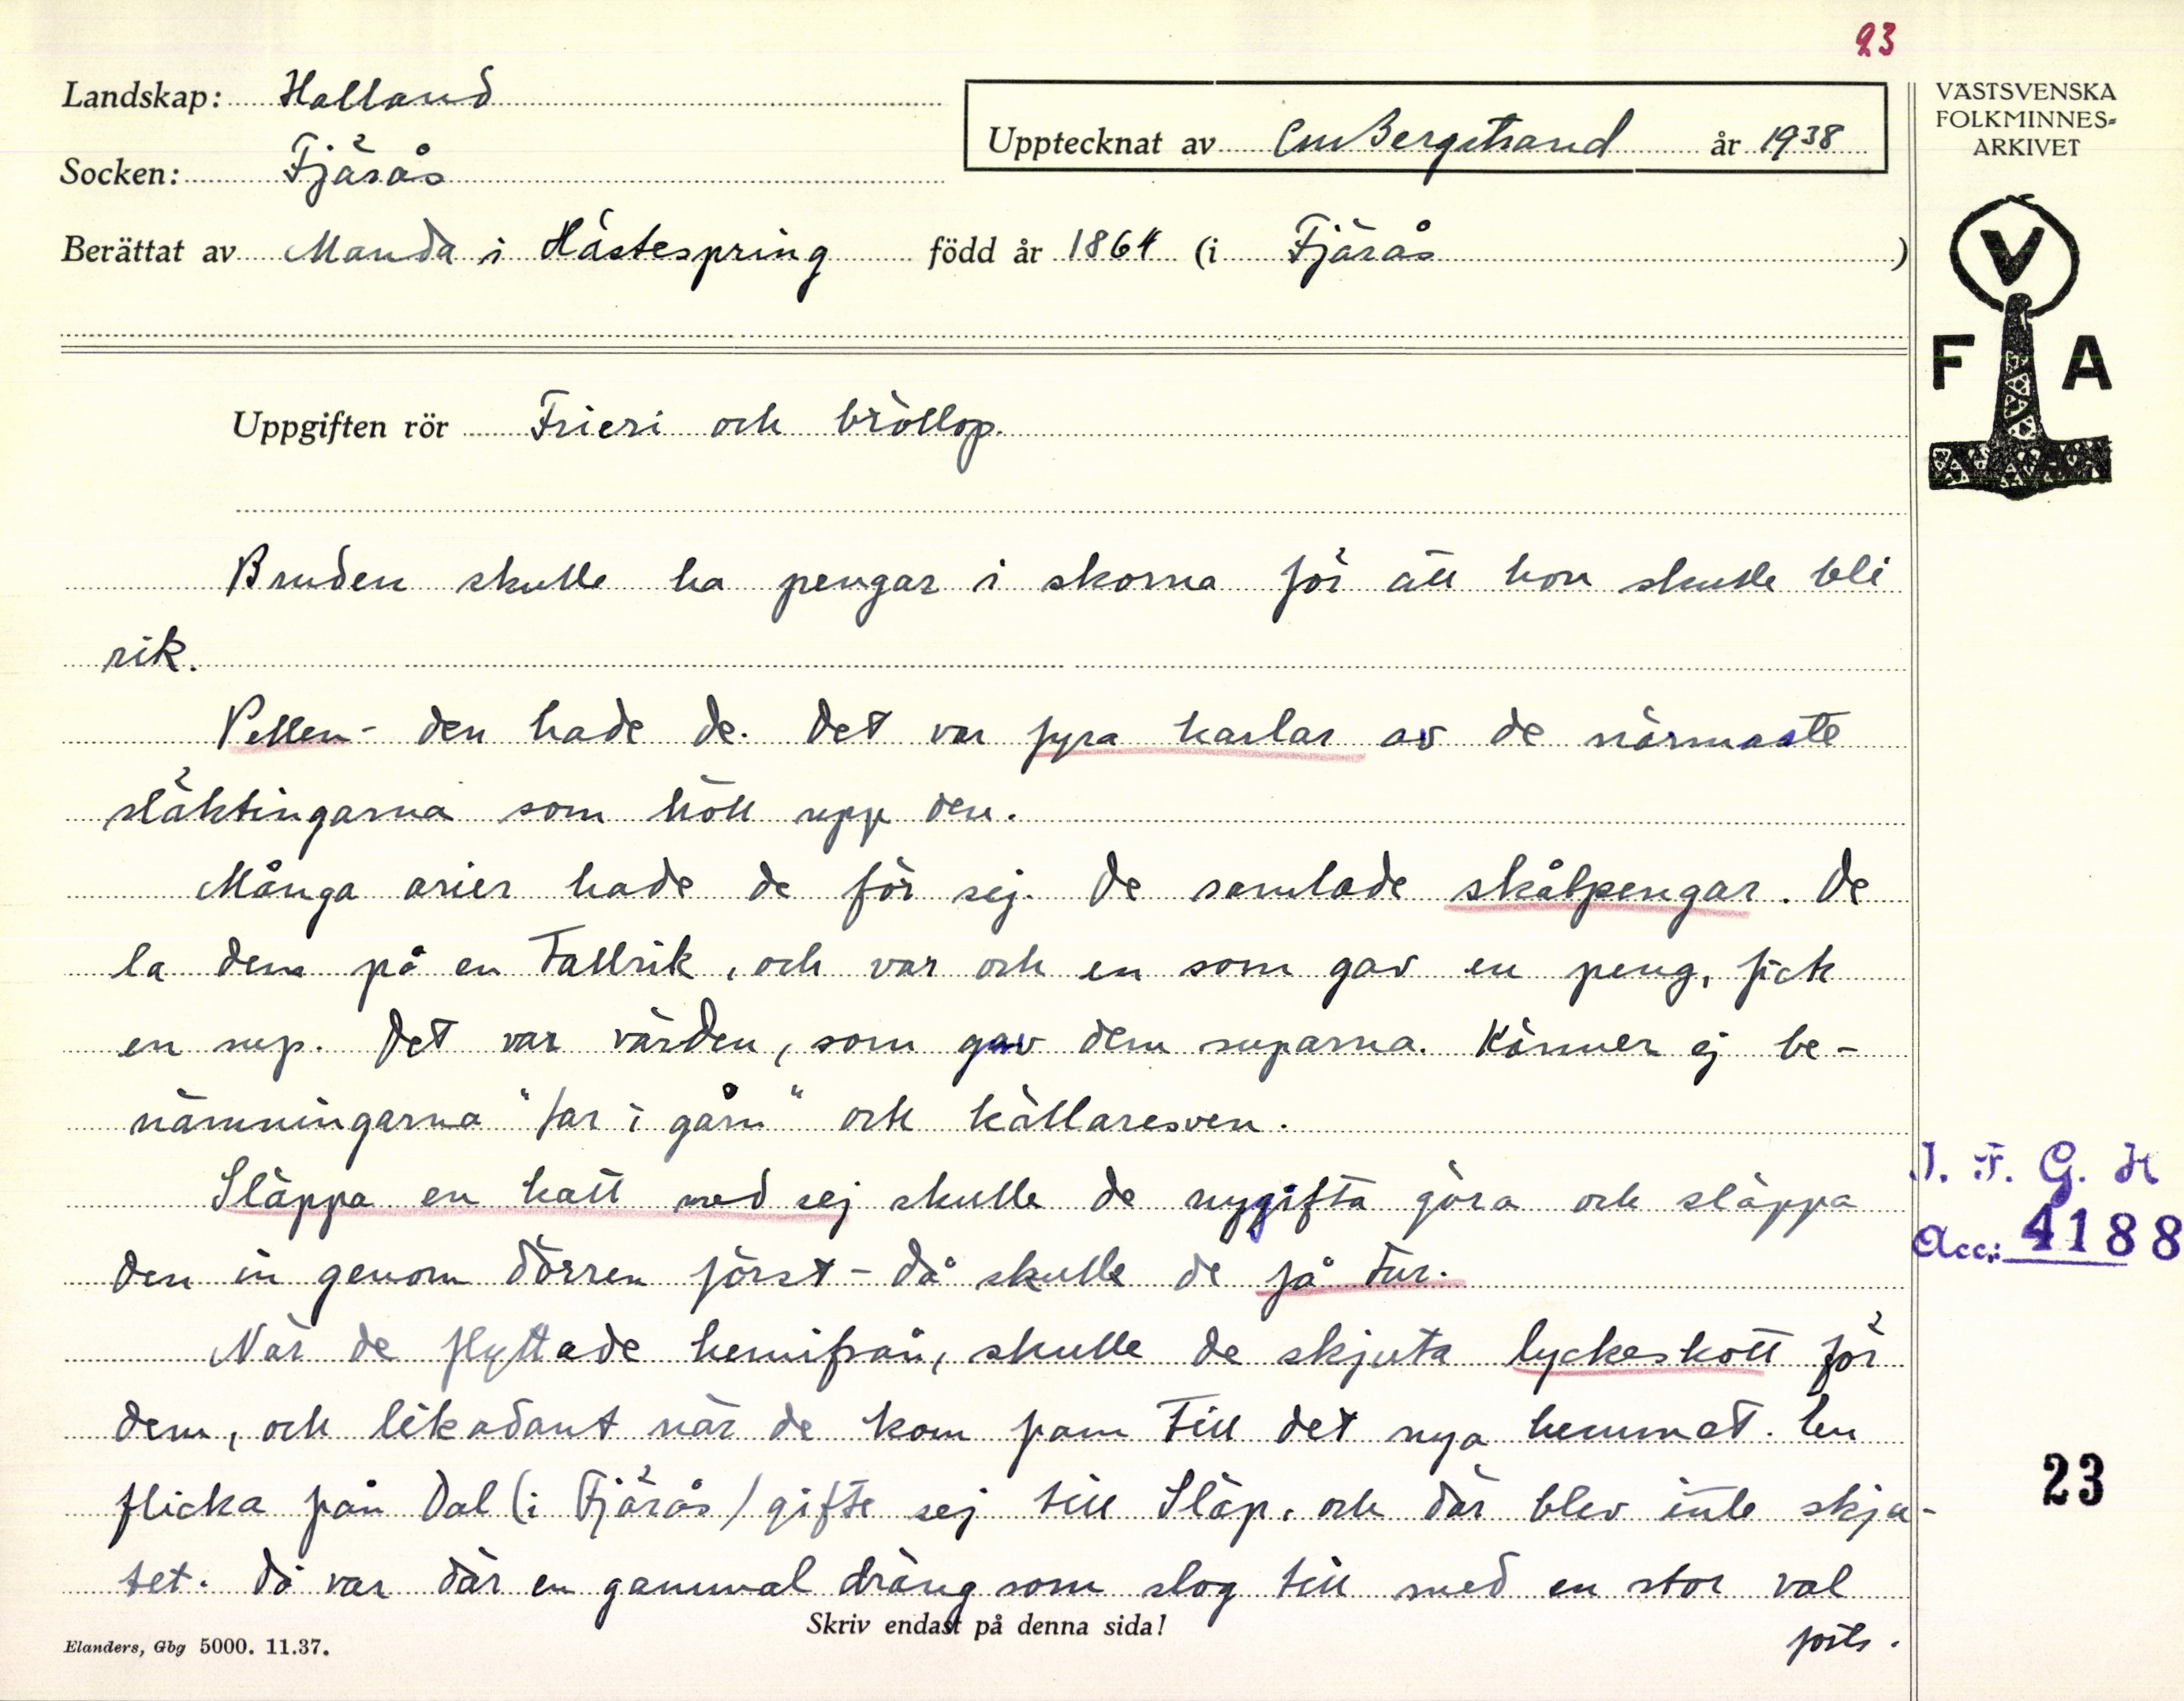 23
Landskap: Halland
Socken: Fjärås
Upptecknat av CmBergstrand år 1938
Berättat av Manda i Hästespring född år 1864 (i Fjärås)
VÄSTSVENSKA
FOLKMINNES-
ARKIVET
V
F A
Uppgiften rör Frieri och bröllop.
Bruden skulle ha pengar i skorna för att hon skulle bli
rik.
Pellen - den hade de. Det var fyra karlar av de närmaste
släktingarna som höll upp den.
Många arier hade de för sej. De samlade skålpengar. De
la dem på en tallrik, och var och en som gav en peng, fick
en sup. Det var värden, som gav dem suparna. Känner ej be-
nämningarna "far i gårn" och källaresven.
Släppa en katt med sej skulle de nygifta göra och släppa
den in genom dörren först - då skulle de få tur.
När de flyttade hemifrån, skulle de skjuta lyckeskott för
dem, och likadant när de kom fram till det nya hemmet. En
flicka från Dal (i Fjärås) gifte sej till Släp, och där blev inte skju-
tet. Då var där en gammal dräng som slog till med en stor val
forts.
I. F. G. H
Acc: 4188
23
Skriv endast på denna sida!
Elanders, Gbg 5000. 11.37.